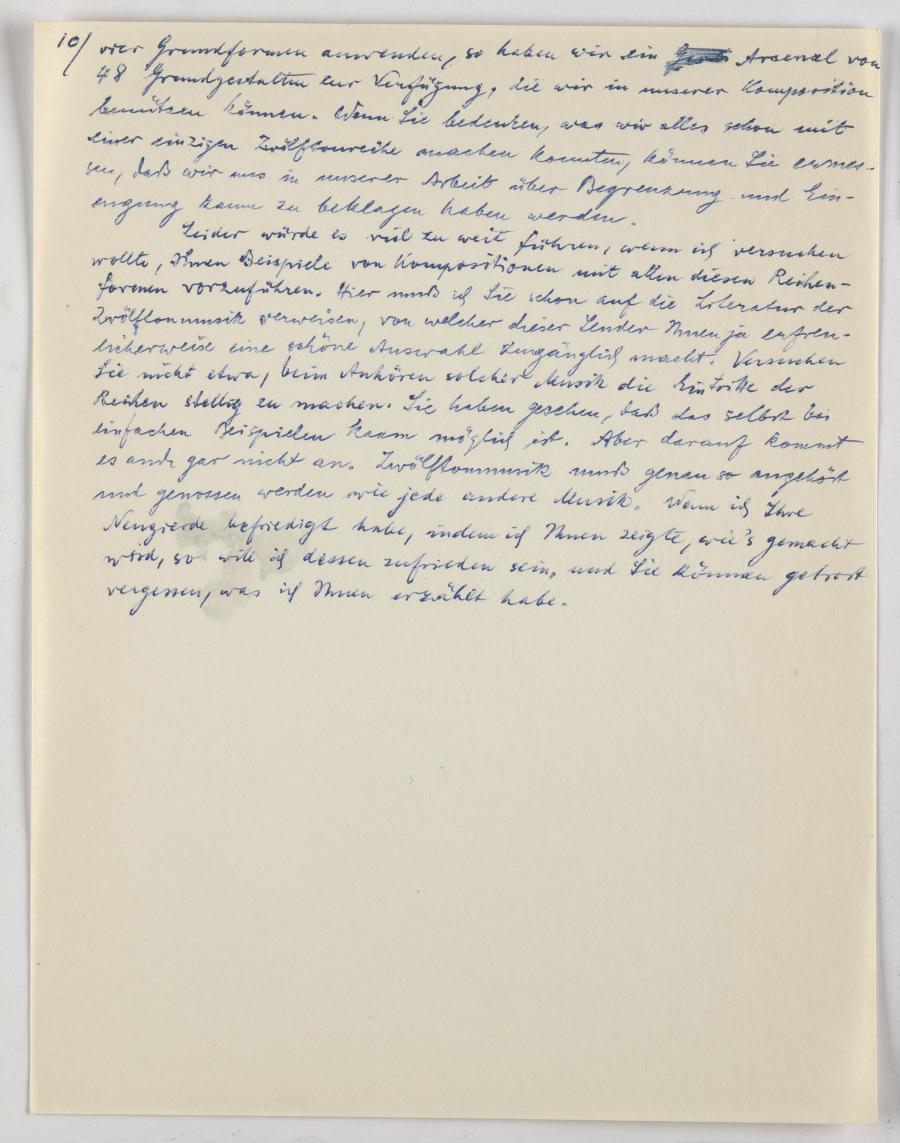 10/ vier Grundformen anwenden, so haben wir ein Arsenal von
48 Grundgestalten zur Verfügung, die wir in unserer Komposition
benützen können. Wenn Sie bedenken, was wir alles schon mit
einer einzigen Zwölftonreihe machen konnten, können Sie ermes-
sen, daß wir uns in unserer Arbeit über Begrenzung und Ein-
engung kaum zu beklagen haben werden.
Leider würde es viel zu weit führen, wenn ich versuchen
wollte, Ihnen Beispiele von Kompositionen mit allen diesen Reihen-
formen vorzuführen. Hier muß ich Sie schon auf die Literatur der
Zwölftonmusik verweisen, von welcher dieser Sender Ihnen ja erfreu-
licherweise eine schöne Auswahl zugänglich macht. Versuchen
Sie nicht etwa, beim Anhören solcher Musik die Eintritte der
Reihen stellig zu machen. Sie haben gesehen, daß das selbst bei
einfachen Beispielen kaum möglich ist. Aber darauf kommt
es auch gar nicht an. Zwölftonmusik muß genau so angehört
und genossen werden wie jede andere Musik. Wenn ich Ihre
Neugierde befriedigt habe, indem ich Ihnen zeigte, wie's gemacht
wird, so will ich dessen zufrieden sein, und Sie können getrost
vergessen, was ich Ihnen erzählt habe.